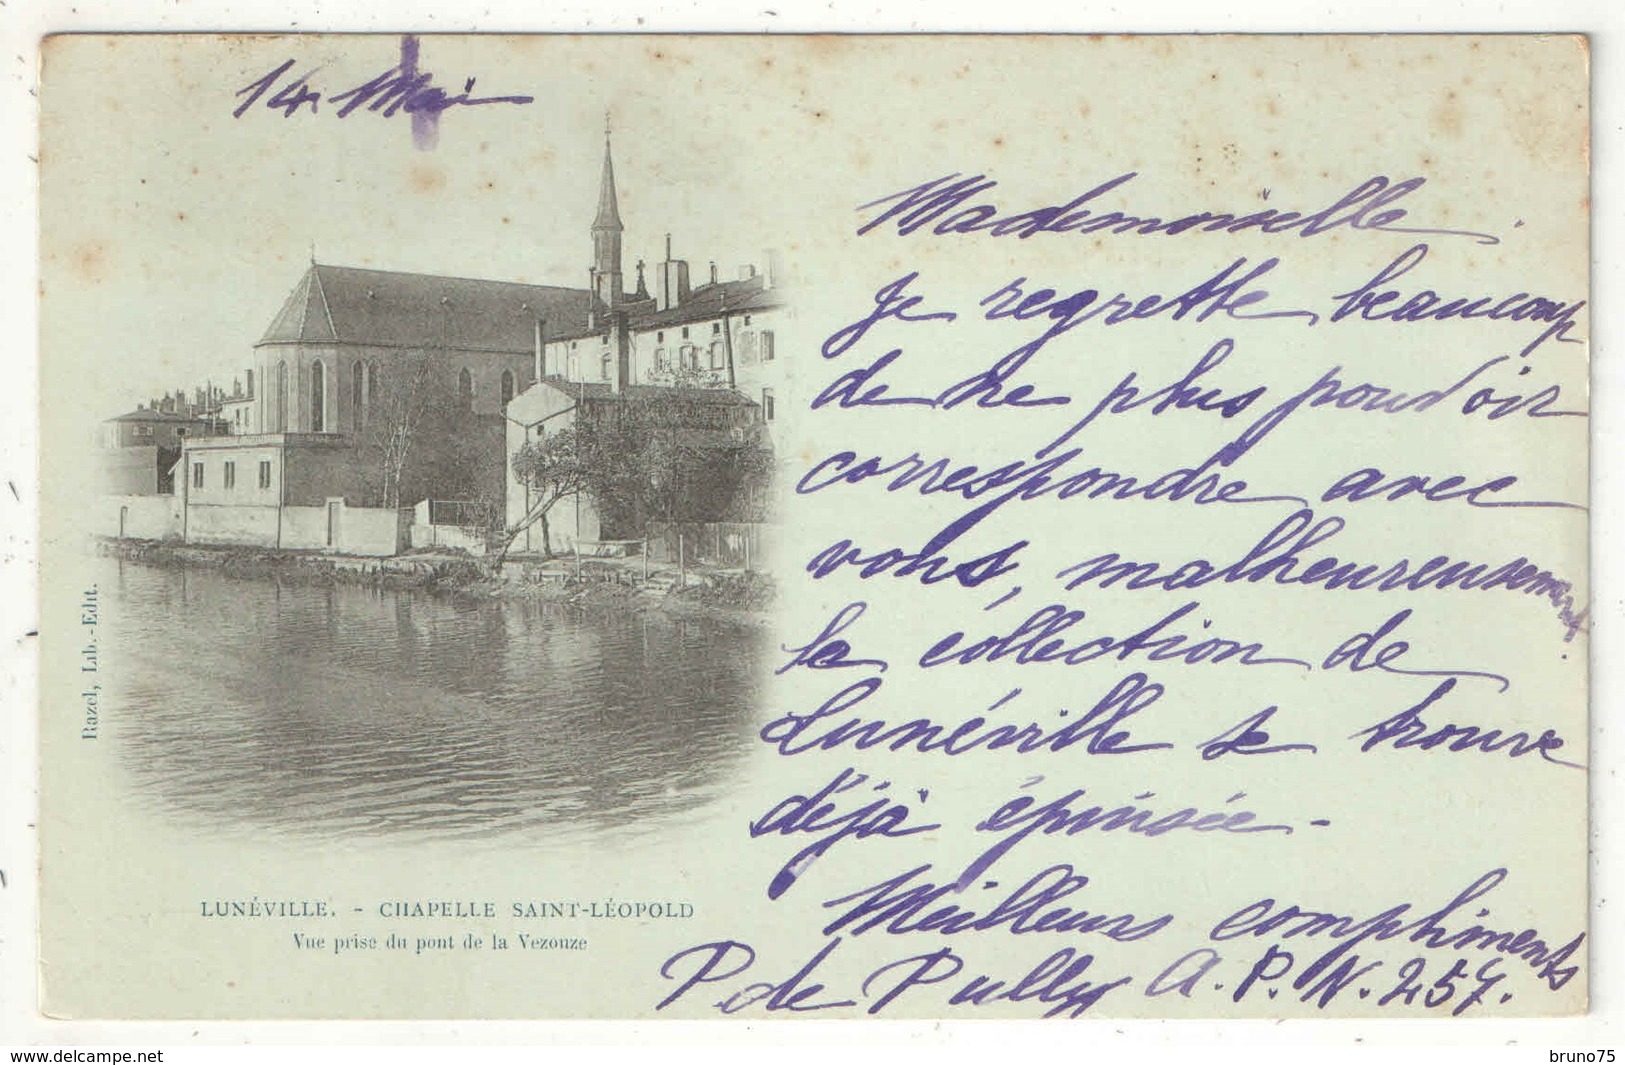 14 Mai
Mademoiselle.
Je regrette beaucoup
de ne plus pouvoir
correspondre avec
vous, malheureusement.
la collection de
Lunéville se trouve
déjà épuisée -
Meilleurs compliments
P. de Pully A.P.N. 257.
Razel, Lib.-Edit.
LUNÉVILLE. - CHAPELLE SAINT-LÉOPOLD
Vue prise du pont de la Vezouze
www.delcampe.net
bruno75